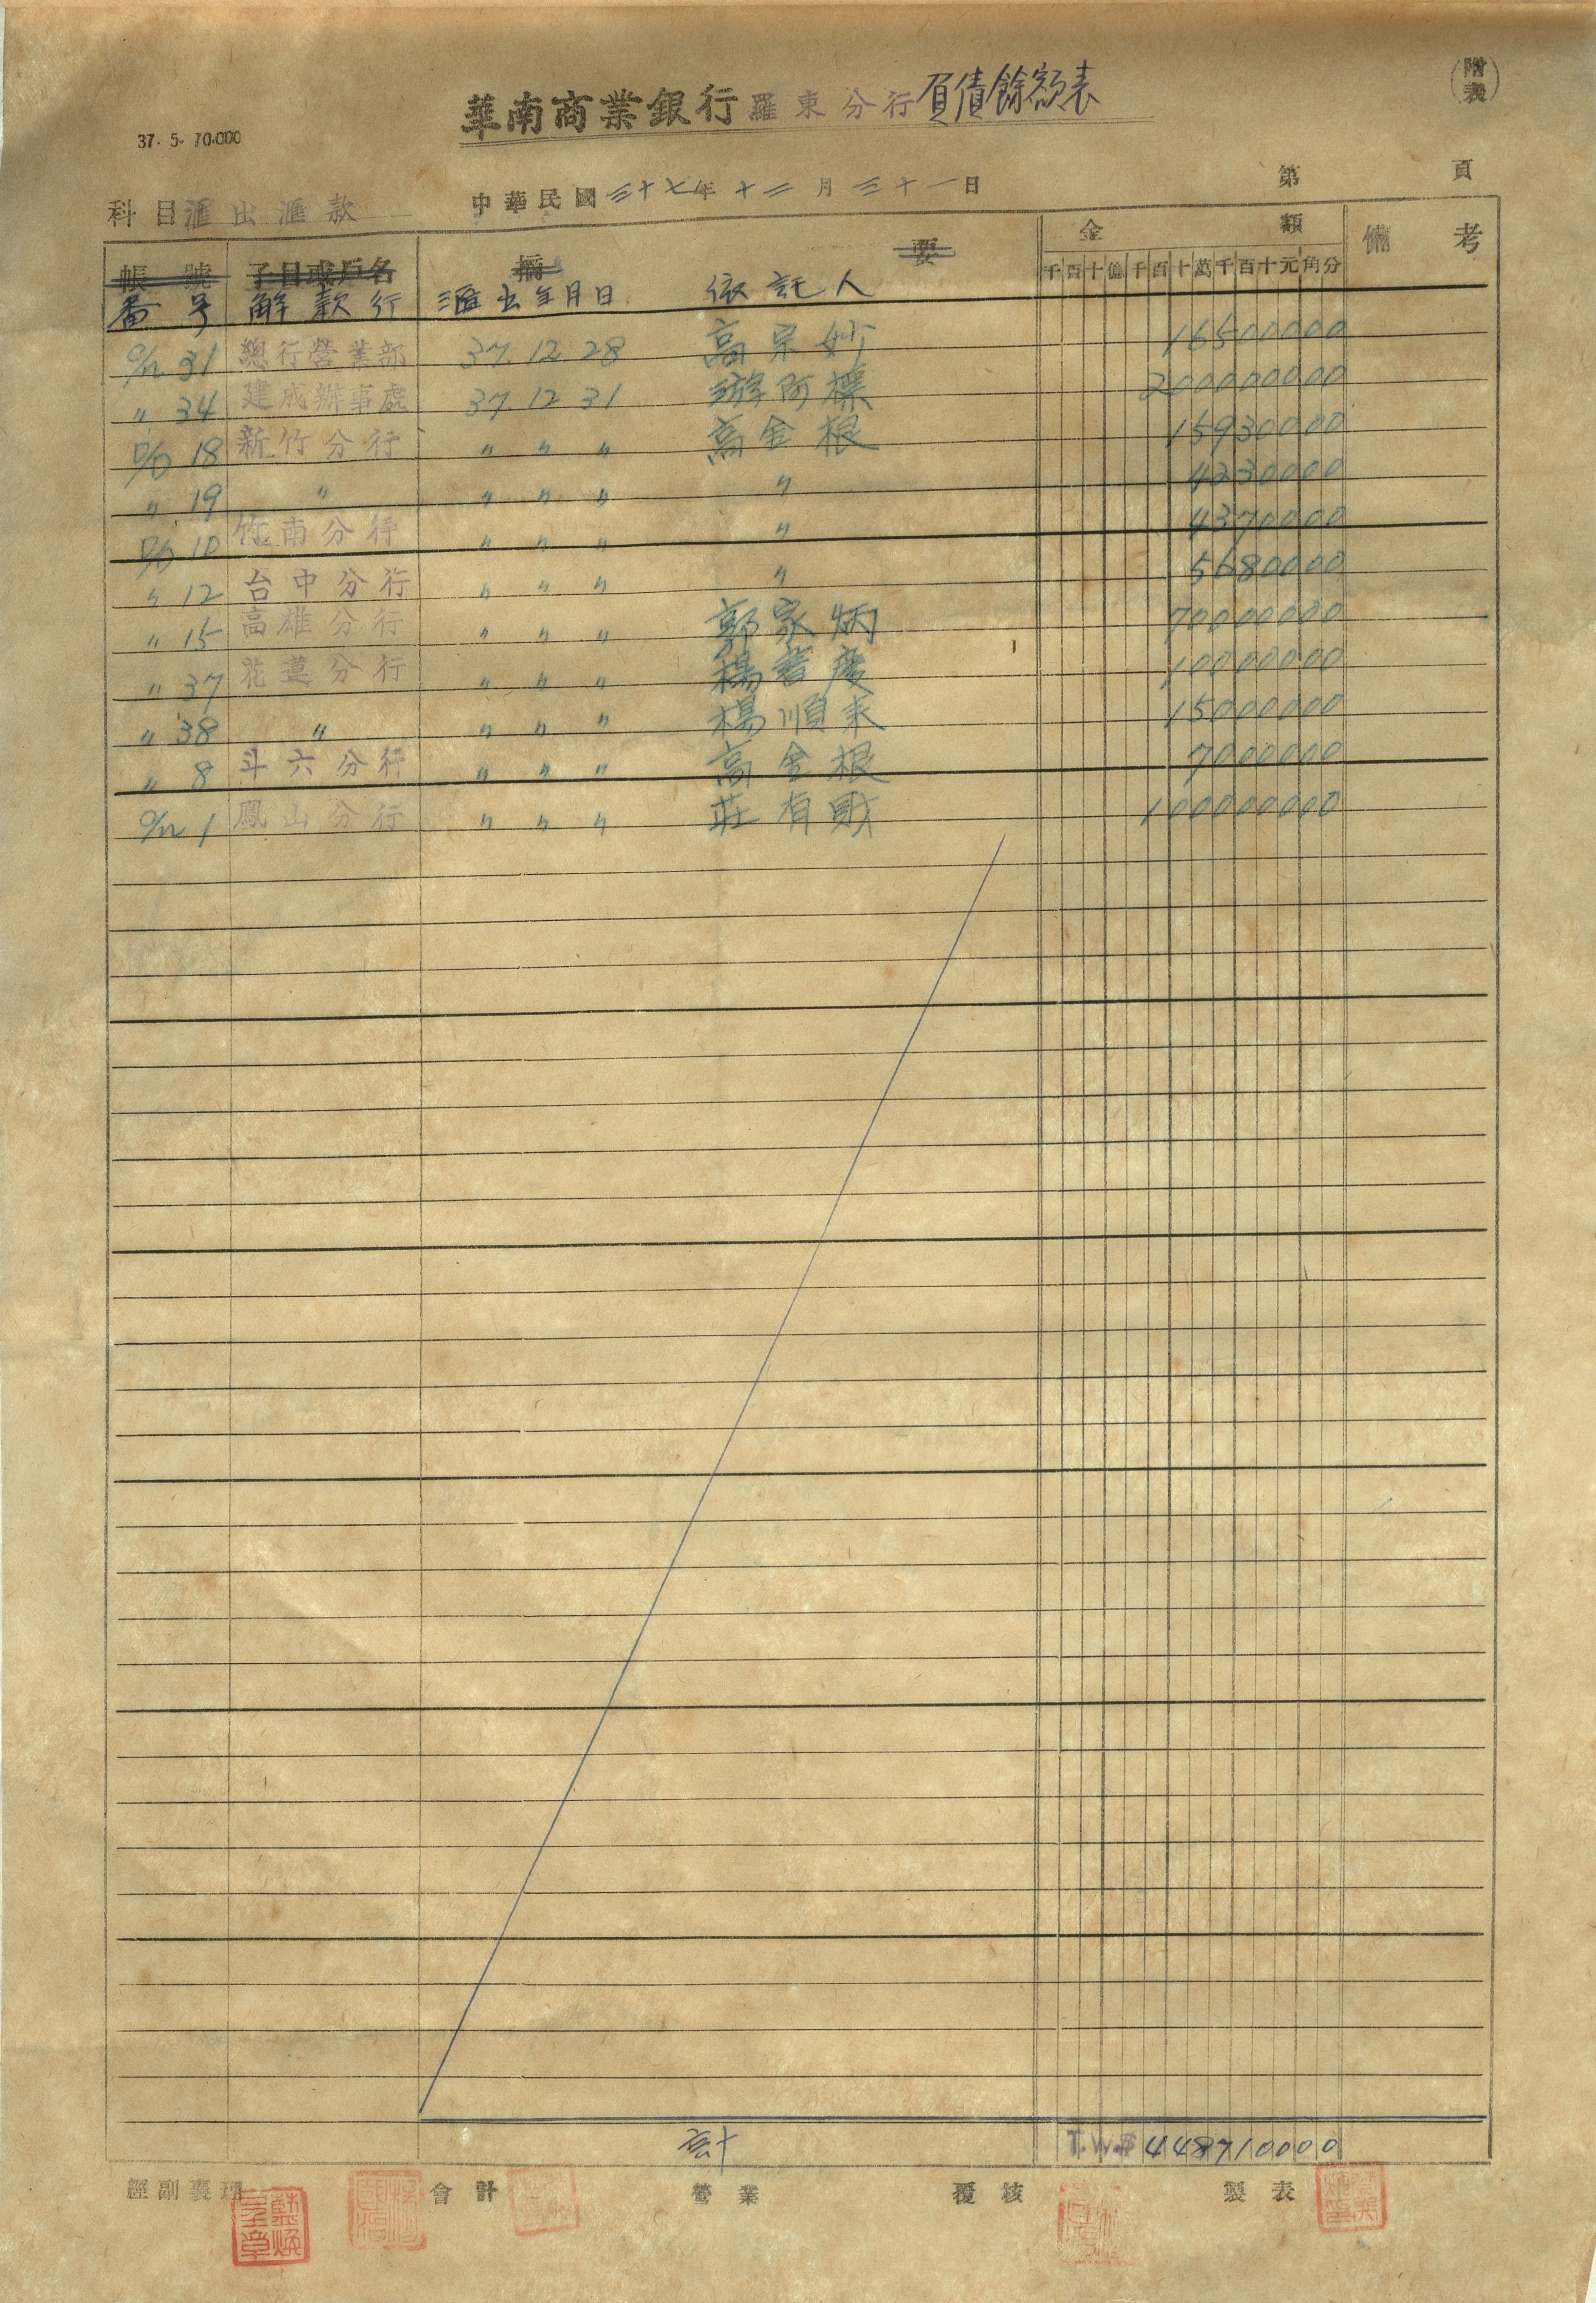 附表
華南商業銀行羅東分行負債餘額表
37.5.70.000
中華民國三十七年十二月三十一日
第 頁
科目匯出匯款
帳號 子目或戶名 摘要 金額 備考
千百十億千百十萬千百十元角分
番号 解款行 匯出年月日 依託人
31 總行營業部 37.12.28 高宗妙 16500000
〃 34 建成辦事處 37.12.31 游阿標 200000000
18 新竹分行 〃 〃 〃 高金根 15930000
〃 19 〃 〃 〃 〃 〃 4230000
10 竹南分行 〃 〃 〃 〃 4370000
〃 12 台中分行 〃 〃 〃 〃 5680000
〃 15 高雄分行 〃 〃 〃 郭家炳 70000000
〃 37 花蓮分行 〃 〃 〃 10000000
〃 38 〃 〃 〃 〃 楊順来 15000000
〃 8 斗六分行 〃 〃 〃 高金根 7000000
1 鳳山分行 〃 〃 〃 莊有財 100000000
經副襄理 會計 營業 覆核 製表